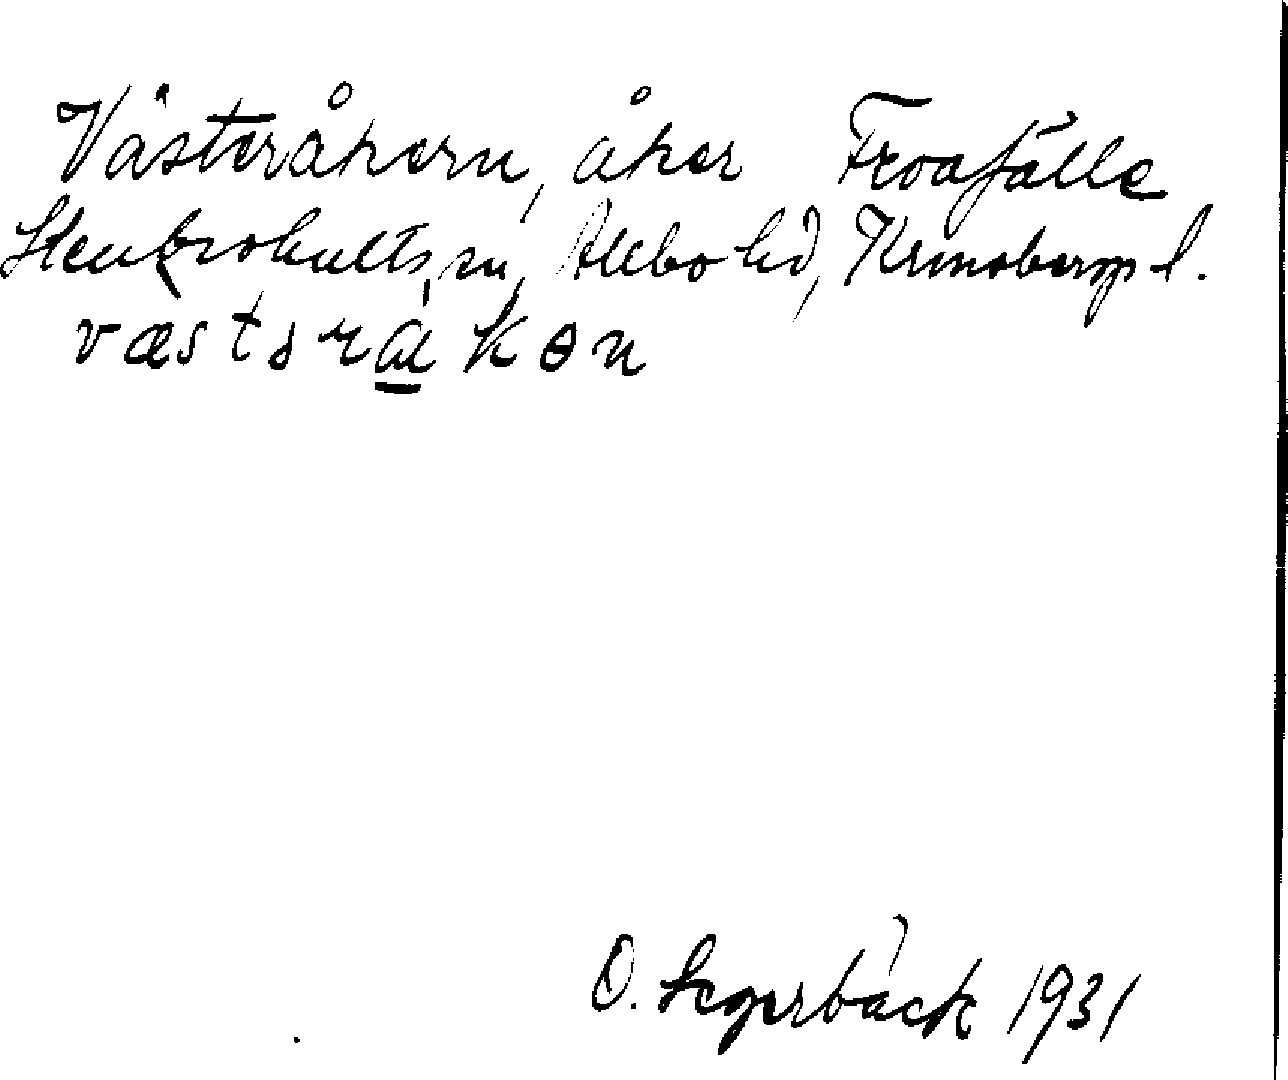 Västeråkern, åker Froafälle
Stenbrohults sn, Allbo hd, Kronobergs l.
væstərakən
O. Segerbäck 1931